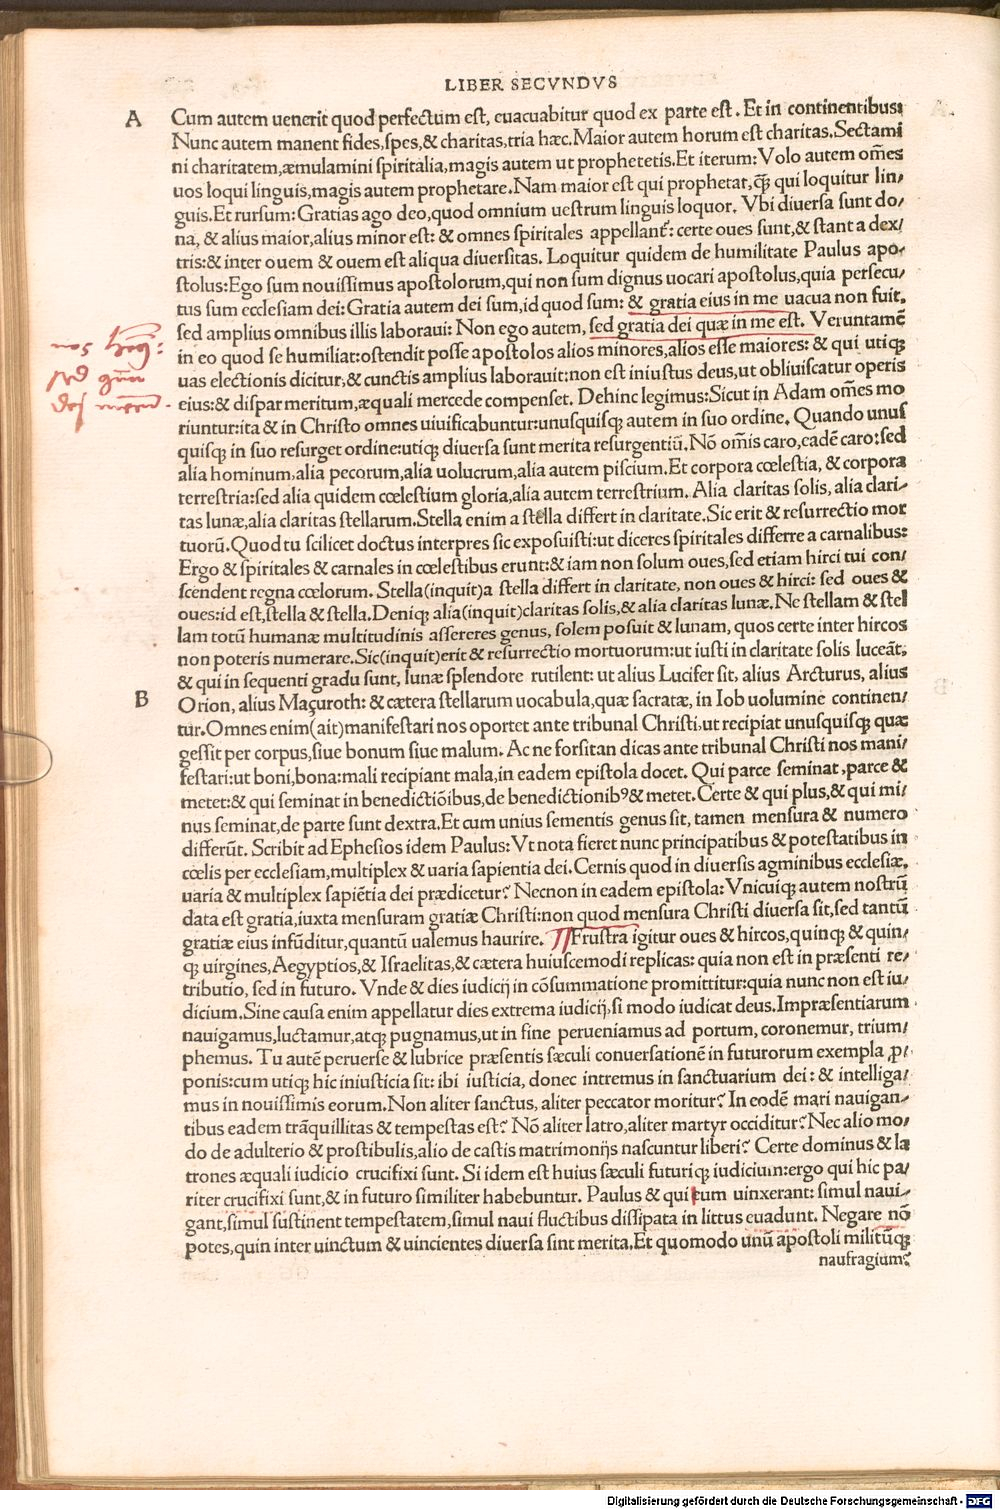 LIBER SECVNDVS
A
Cum autem uenerit quod perfectum est, euacuabitur quod ex parte est. Et in continentibus:
Nunc autem manent fides, spes, & charitas, tria hæc. Maior autem horum est charitas. Sectami
ni charitatem, æmulamini spiritalia, magis autem ut prophetetis. Et iterum: Volo autem om̃es
uos loqui linguis, magis autem prophetare. Nam maior est qui prophetat, q̃ȝ qui loquitur lin/
guis. Et rursum: Gratias ago deo, quod omnium uestrum linguis loquor. Vbi diuersa sunt do/
na, & alius maior, alius minor est: & omnes spiritales appellant᷑: certe oues sunt, & stant a dex/
tris: & inter ouem & ouem est aliqua diuersitas. Loquitur quidem de humilitate Paulus apo-
stolus: Ego sum nouissimus apostolorum, qui non sum dignus uocari apostolus, quia persecu/
tus sum ecclesiam dei: Gratia autem dei sum, id quod sum: & gratia eius in me uacua non fuit,
sed amplius omnibus illis laboraui: Non ego autem, sed gratia dei quæ in me est. Veruntamẽ
in eo quod se humiliat: ostendit posse apostolos alios minores, alios esse maiores: & qui utiqȝ
uas electionis dicitur, & cunctis amplius laborauit: non est iniustus deus, ut obliuiscatur operis
eius: & dispar meritum, æquali mercede compenset. Dehinc legimus: Sicut in Adam om̃es mo
riuntur: ita & in Christo omnes uiuificabuntur: unusquisqȝ autem in suo ordine. Quando unus
quisqȝ in suo resurget ordine: utiqȝ diuersa sunt merita resurgentiũ. Nõ om̃is caro, cadẽ caro: sed
alia hominum, alia pecorum, alia uolucrum, alia autem piscium. Et corpora cœlestia, & corpora
terrestria: sed alia quidem cœlestium gloria, alia autem terrestrium. Alia claritas solis, alia clari/
tas lunæ, alia claritas stellarum. Stella enim a stella differt in claritate. Sic erit & resurrectio mor
tuorũ. Quod tu scilicet doctus interpres sic exposuisti: ut diceres spiritales differre a carnalibus:
Ergo & spiritales & carnales in cœlestibus erunt: & iam non solum oues, sed etiam hirci tui con/
scendent regna cœlorum. Stella (inquit) a stella differt in claritate, non oues & hirci: sed oues &
oues: id est, stella & stella. Deniqȝ alia (inquit) claritas solis, & alia claritas lunæ. Ne stellam & stel
lam totũ humanæ multitudinis assereres genus, solem posuit & lunam, quos certe inter hircos
non poteris numerare. Sic (inquit) erit & resurrectio mortuorum: ut iusti in claritate solis luceãt,
& qui in sequenti gradu sunt, lunæ splendore rutilent: ut alius Lucifer sit, alius Arcturus, alius
B
Orion, alius Maçuroth: & cætera stellarum uocabula, quæ sacratæ, in Iob uolumine continen/
tur. Omnes enim (ait) manifestari nos oportet ante tribunal Christi, ut recipiat unusquisqȝ quæ
gessit per corpus, siue bonum siue malum. Ac ne forsitan dicas ante tribunal Christi nos mani/
festari: ut boni, bona: mali recipiant mala, in eadem epistola docet. Qui parce seminat, parce &
metet: & qui seminat in benedictiõibus, de benedictionibꝰ & metet. Certe & qui plus, & qui mi/
nus seminat, de parte sunt dextra. Et cum unius sementis genus sit, tamen mensura & numero
differũt. Scribit ad Ephesios idem Paulus: Vt nota fieret nunc principatibus & potestatibus in
cœlis per ecclesiam, multiplex & uaria sapientia dei. Cernis quod in diuersis agminibus ecclesiæ,
uaria & multiplex sapiẽtia dei prædicetur? Necnon in eadem epistola: Vnicuiqȝ autem nostrũ
data est gratia, iuxta mensuram gratiæ Christi: non quod mensura Christi diuersa sit, sed tantũ
gratiæ eius infũditur, quantũ ualemus haurire. Frustra igitur oues & hircos, quinqȝ & quin/
qȝ uirgines, Aegyptios, & Israelitas, & cætera huiuscemodi replicas: quia non est in præsenti re/
tributio, sed in futuro. Vnde & dies iudicij in cõsummatione promittitur: quia nunc non est iu/
dicium. Sine causa enim appellatur dies extrema iudicij, si modo iudicat deus. Impræsentiarum
nauigamus, luctamur, atqȝ pugnamus, ut in fine perueniamus ad portum, coronemur, trium/
phemus. Tu autẽ peruerse & lubrice præsentis sæculi conuersationẽ in futurorum exempla ꝓ/
ponis: cum utiqȝ hic iniusticia sit: ibi iusticia, donec intremus in sanctuarium dei: & intelliga/
mus in nouissimis eorum. Non aliter sanctus, aliter peccator moritur? In eodẽ mari nauigan/
tibus eadem trãquillitas & tempestas est? Nõ aliter latro, aliter martyr occiditur? Nec alio mo/
do de adulterio & prostibulis, alio de castis matrimonijs nascuntur liberi? Certe dominus & la
trones æquali iudicio crucifixi sunt. Si idem est huius sæculi futuriqȝ iudicium: ergo qui hic pa/
riter crucifixi sunt, & in futuro similiter habebuntur. Paulus & qui eum uinxerant: simul naui/
gant, simul sustinent tempestatem, simul naui fluctibus dissipata in littus euadunt. Negare nõ
potes, quin inter uinctum & uincientes diuersa sint merita. Et quomodo unũ apostoli militũqȝ
naufragium?
Digitalisierung gefördert durch die Deutsche Forschungsgemeinschaft - DFG